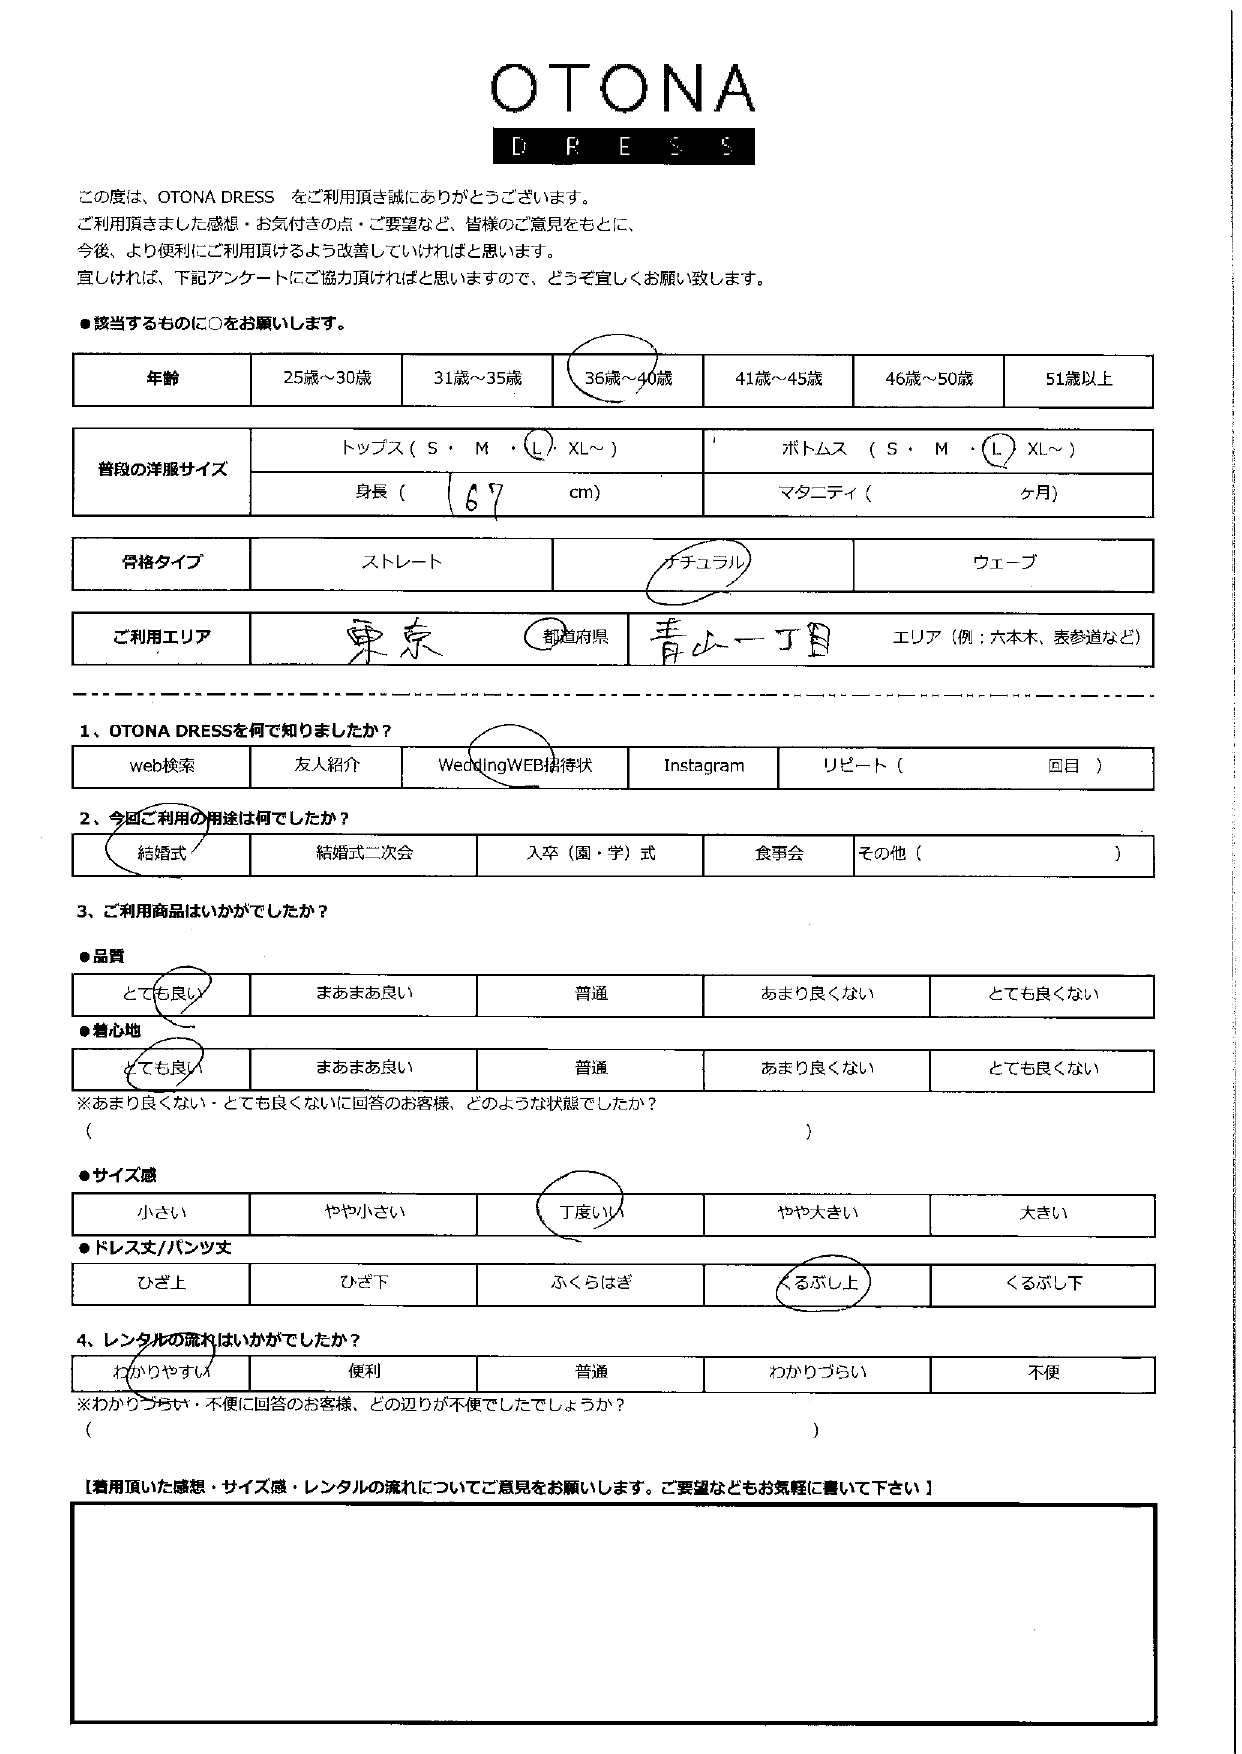 OTONA
DRESS
この度は、OTONA DRESS をご利用頂き誠にありがとうございます。
ご利用頂きました感想・お気付きの点・ご要望など、皆様のご意見をもとに、
今後、より便利にご利用頂けるよう改善していければと思います。
宜しければ、下記アンケートにご協力頂ければと思いますので、どうぞ宜しくお願い致します。
●該当するものに○をお願いします。
年齢 25歳～30歳 31歳～35歳 36歳～40歳 41歳～45歳 46歳～50歳 51歳以上
普段の洋服サイズ トップス ( S ・ M ・ L ・ XL～ ) ボトムス ( S ・ M ・ L ) XL～ )
身長 ( 167 cm) マタニティ ( ヶ月)
骨格タイプ ストレート ナチュラル ウェーブ
ご利用エリア 東京 都道府県 青山一丁目 エリア（例：六本木、表参道など）
1、OTONA DRESSを何で知りましたか？
web検索 友人紹介 WeddingWEB招待状 Instagram リピート ( 回目 )
2、今回ご利用の用途は何でしたか？
結婚式 結婚式二次会 入卒（園・学）式 食事会 その他 ( )
3、ご利用商品はいかがでしたか？
●品質
とても良い まあまあ良い 普通 あまり良くない とても良くない
●着心地
とても良い まあまあ良い 普通 あまり良くない とても良くない
※あまり良くない・とても良くないに回答のお客様、どのような状態でしたか？
( )
●サイズ感
小さい やや小さい 丁度いい やや大きい 大きい
●ドレス丈/パンツ丈
ひざ上 ひざ下 ふくらはぎ くるぶし上 くるぶし下
4、レンタルの流れはいかがでしたか？
わかりやすい 便利 普通 わかりづらい 不便
※わかりづらい・不便に回答のお客様、どの辺りが不便でしたでしょうか？
( )
【着用頂いた感想・サイズ感・レンタルの流れについてご意見をお願いします。ご要望などもお気軽に書いて下さい 】